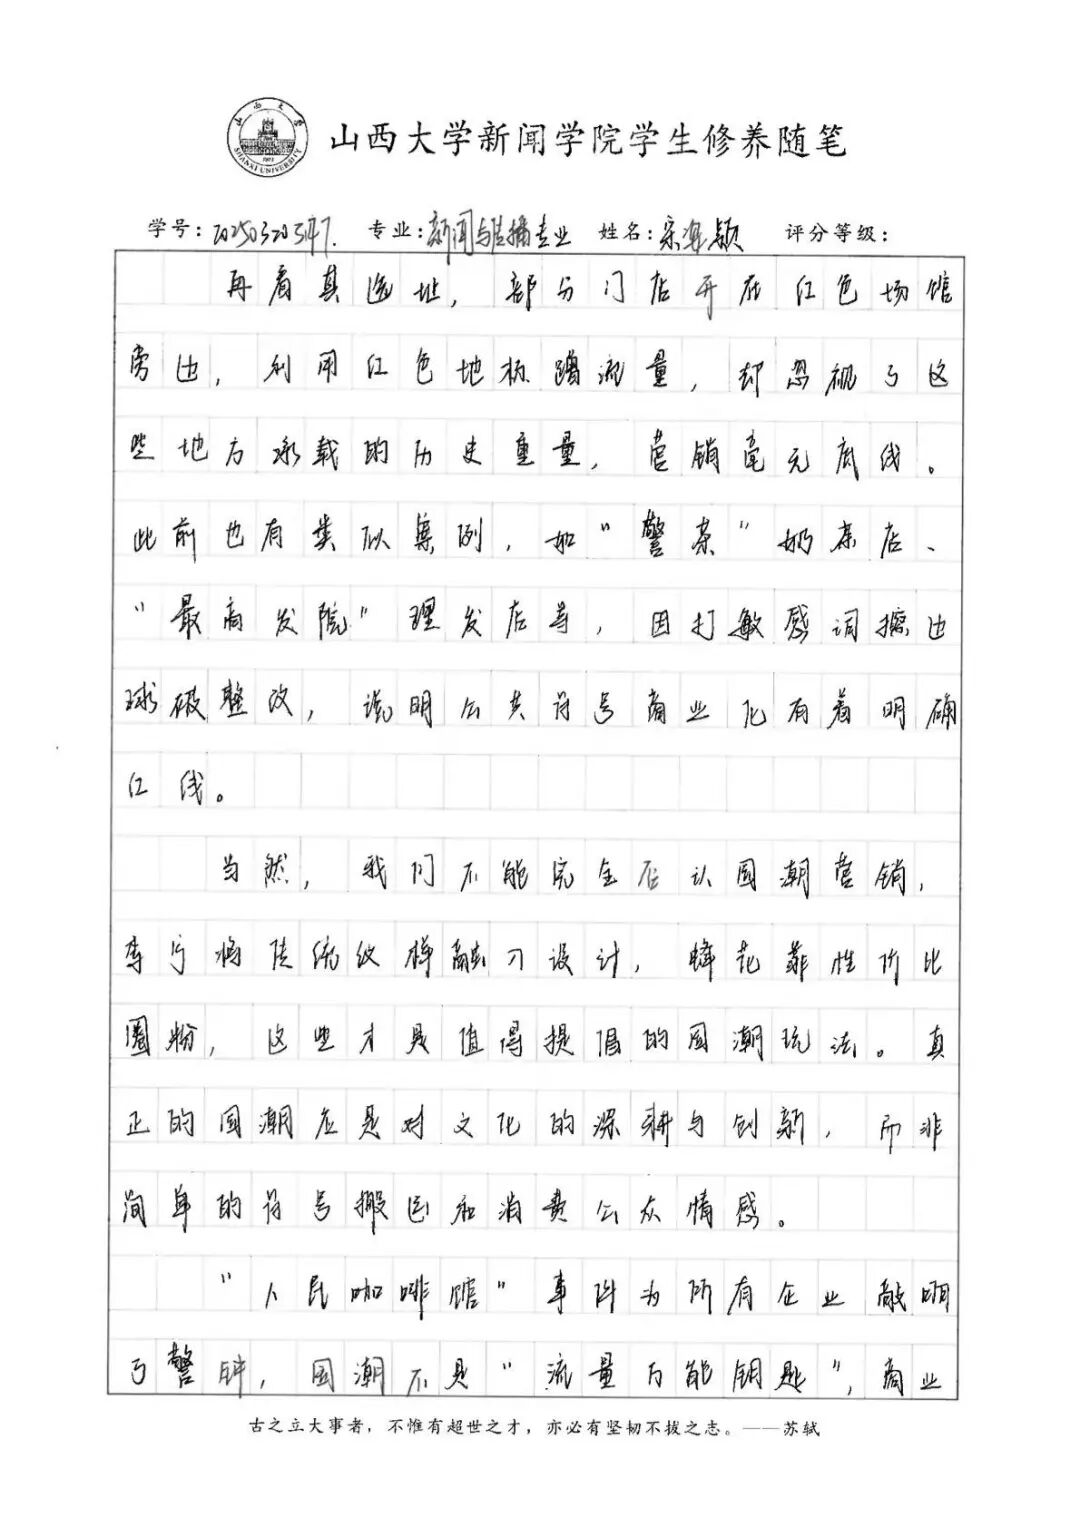 山西大学
SHANXI UNIVERSITY
1902
山西大学新闻学院学生修养随笔
学号: 202503203147. 专业: 新闻与传播专业 姓名: 宋 颖 评分等级:
再看其选址，部分门店开在红色场馆
旁边，利用红色地标蹭流量，却忽视了这
些地方承载的历史重量，营销毫无底线。
此前也有类似案例，如“警茶”奶茶店、
“最高发院”理发店等，因打敏感词擦边
球被整改，说明公共符号商业化有着明确
红线。
当然，我们不能完全否认国潮营销，
李宁将传统纹样融入设计，蜂花靠性价比
圈粉，这些才是值得提倡的国潮玩法。真
正的国潮应是对文化的深耕与创新，而非
简单的符号搬运和消费公众情感。
“人民咖啡馆”事件为所有企业敲响
了警钟，国潮不是“流量万能钥匙”，商业
古之立大事者，不惟有超世之才，亦必有坚韧不拔之志。——苏轼